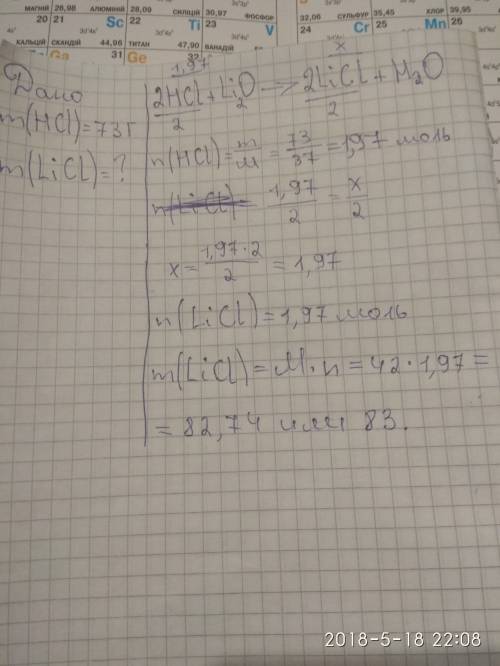 МАГНІЙ 26,98 АЛЮМІНІЙ 28,09 СИЛІЦІЙ 30,97 ФОСФОР 32,06 СУЛЬФУР 35,45 ХЛОР 39,95
20 21 Sc 22 Ti 23 V 24 Cr 25 Mn 26
КАЛЬЦІЙ СКАНДІЙ 44,96 ТИТАН 47,90 ВАНАДІЙ
Ga 31 Ge 32
Дано
m(HCl)=73г
m(LiCl)=?
1,97 x
2HCl+Li2O → 2LiCl+H2O
2 2
n(HCl)=m/M=73/37=1,97 моль
n(LiCl)= 1,97/2=x/2
x=1,97·2/2=1,97
n(LiCl)=1,97 моль
m(LiCl)=M·n=42·1,97=
=82,74 или 83.
2018-5-18 22:08